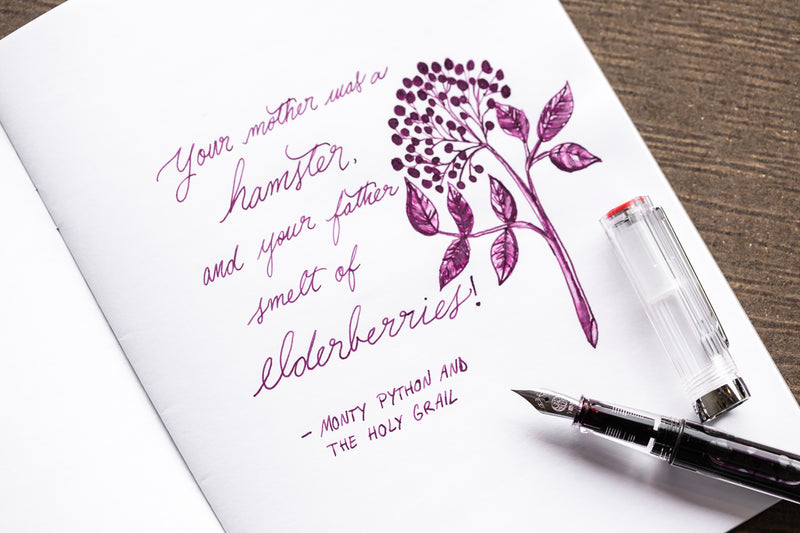 Your mother was a
hamster,
and your father
smelt of
elderberries!
- MONTY PYTHON AND
THE HOLY GRAIL